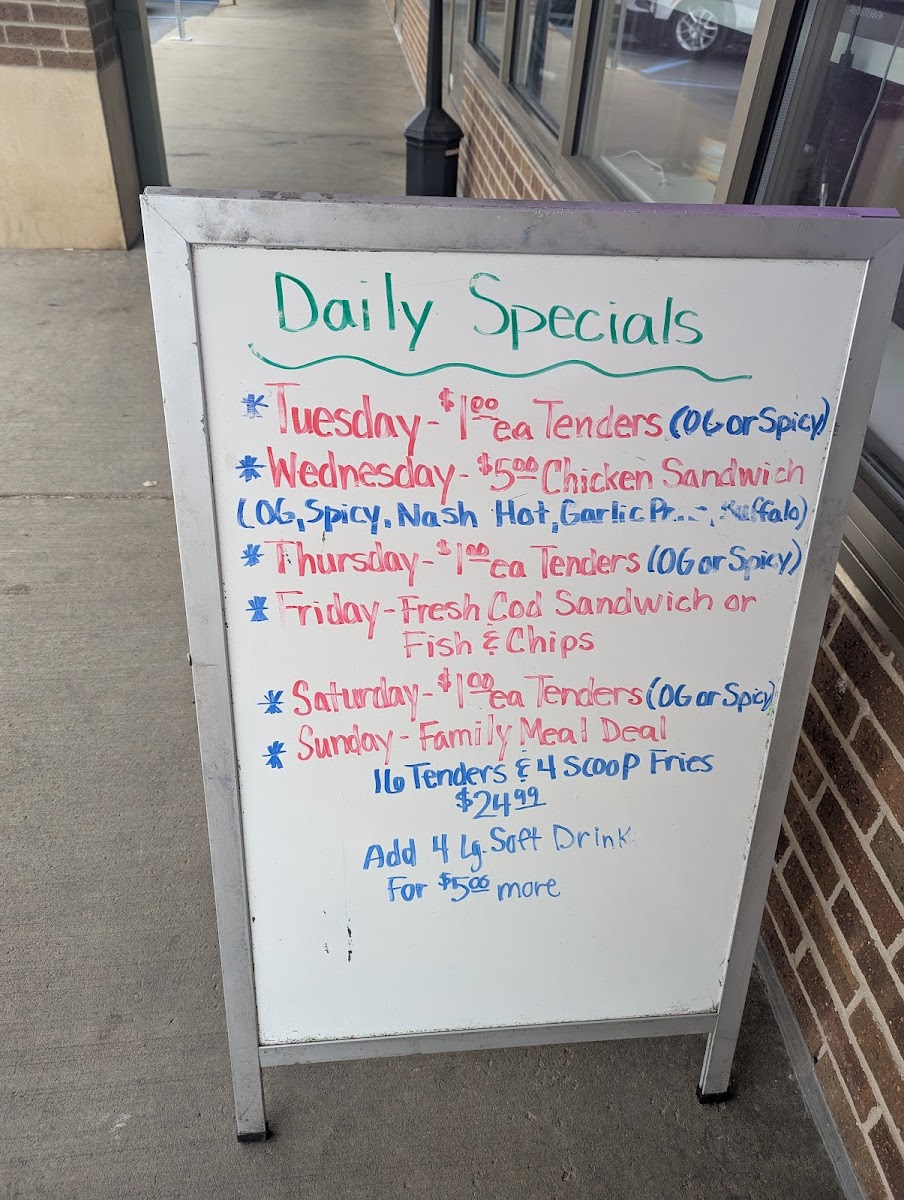 Daily Specials
* Tuesday - $1.00 ea Tenders (OG or Spicy)
* Wednesday - $5.00 Chicken Sandwich
(OG, Spicy, Nash Hot, Garlic Buffalo)
* Thursday - $1.00 ea Tenders (OG or Spicy)
* Friday - Fresh Cod Sandwich or
Fish & Chips
* Saturday - $1.00 ea Tenders (OG or Spicy)
* Sunday - Family Meal Deal
16 Tenders & 4 Scoop Fries
$24.99
Add 4 Lg. Soft Drink
For $5.00 more